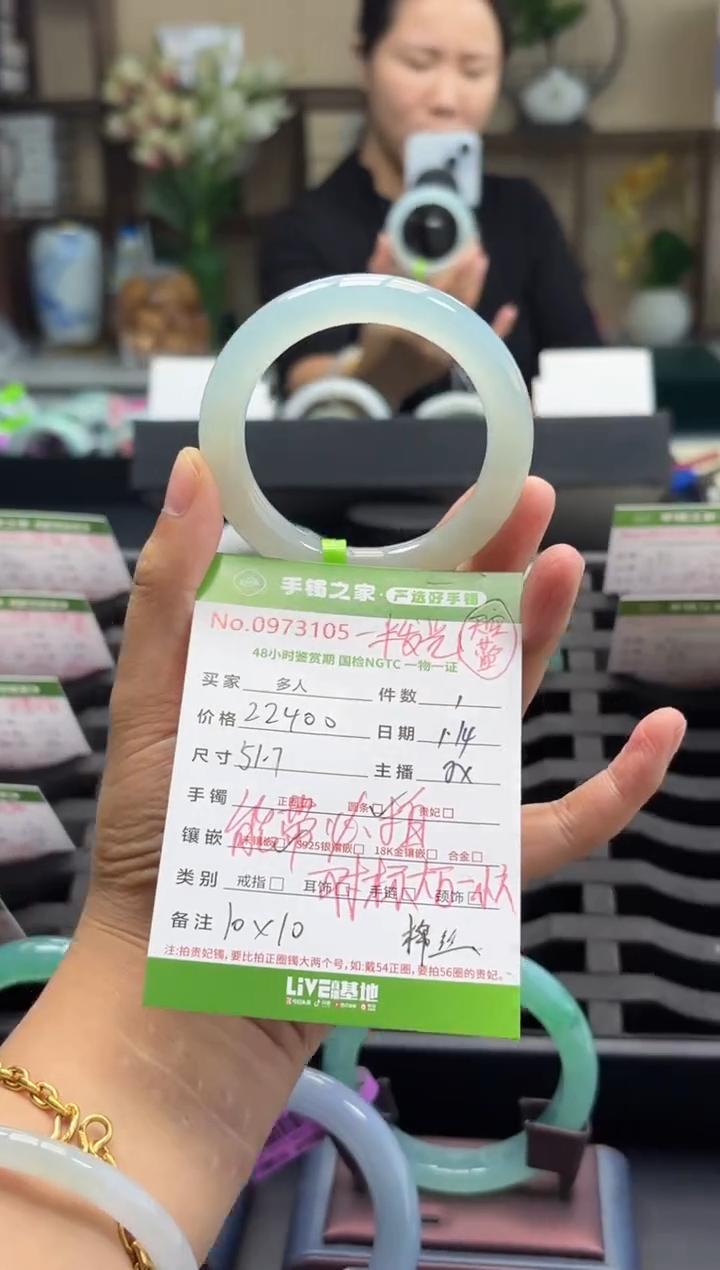 手镯之家·严选好手镯
No.0973105 一半发光 天空蓝
48小时鉴赏期 国检NGTC 一物一证
买家 多人 件数 1
价格 22400 日期 1.14
尺寸 51.7 主播
手镯 正圈 圆条 贵妃
镶嵌 未镶嵌 S925银镶嵌 18K金镶嵌 合金
能带必拍
类别 戒指 耳饰 手链 颈饰
备注 10×10 棉丝
注:拍贵妃镯,要比拍正圈镯大两个号,如:戴54正圈,要拍56圈的贵妃。
LiVE 基地